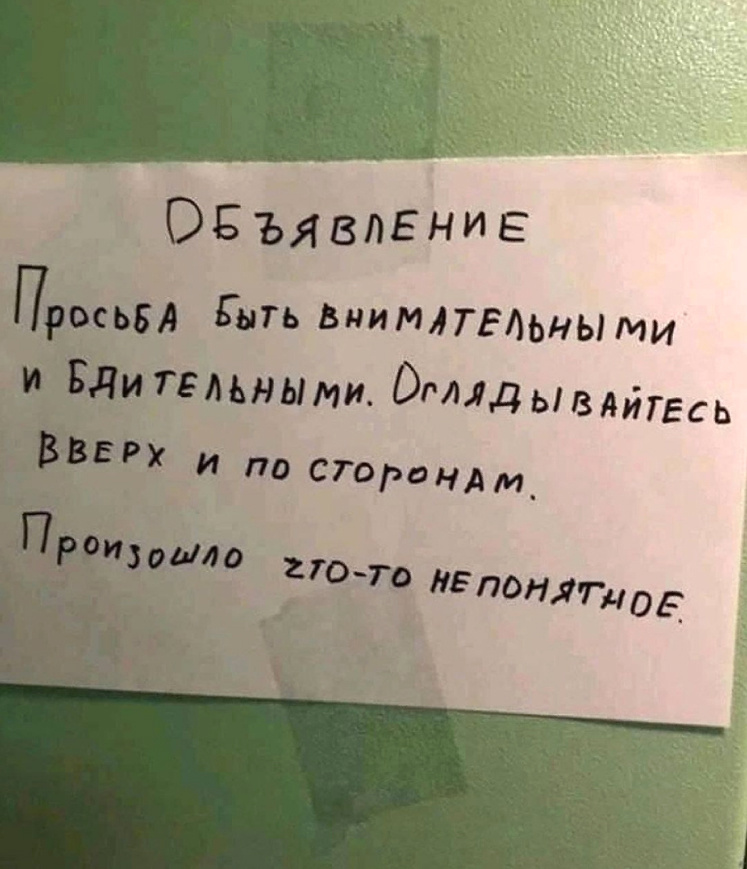 ОБЪЯВЛЕНИЕ
Просьба быть внимательными
и бдительными. Оглядывайтесь
вверх и по сторонам.
Произошло что-то непонятное.